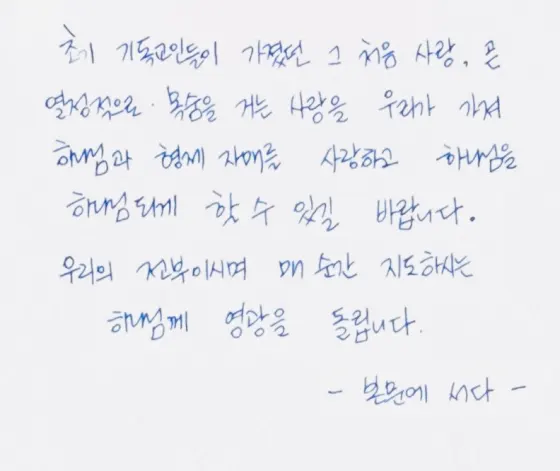 초기 기독교인들이 가졌던 그 처음 사랑, 곧
열정적으로 목숨을 거는 사랑을 우리가 가져
하나님과 형제 자매를 사랑하고 하나님을
하나님 되게 할 수 있길 바랍니다.
우리의 전부이시며 매 순간 지도하시는
하나님께 영광을 돌립니다.
- 본문에 서다 -